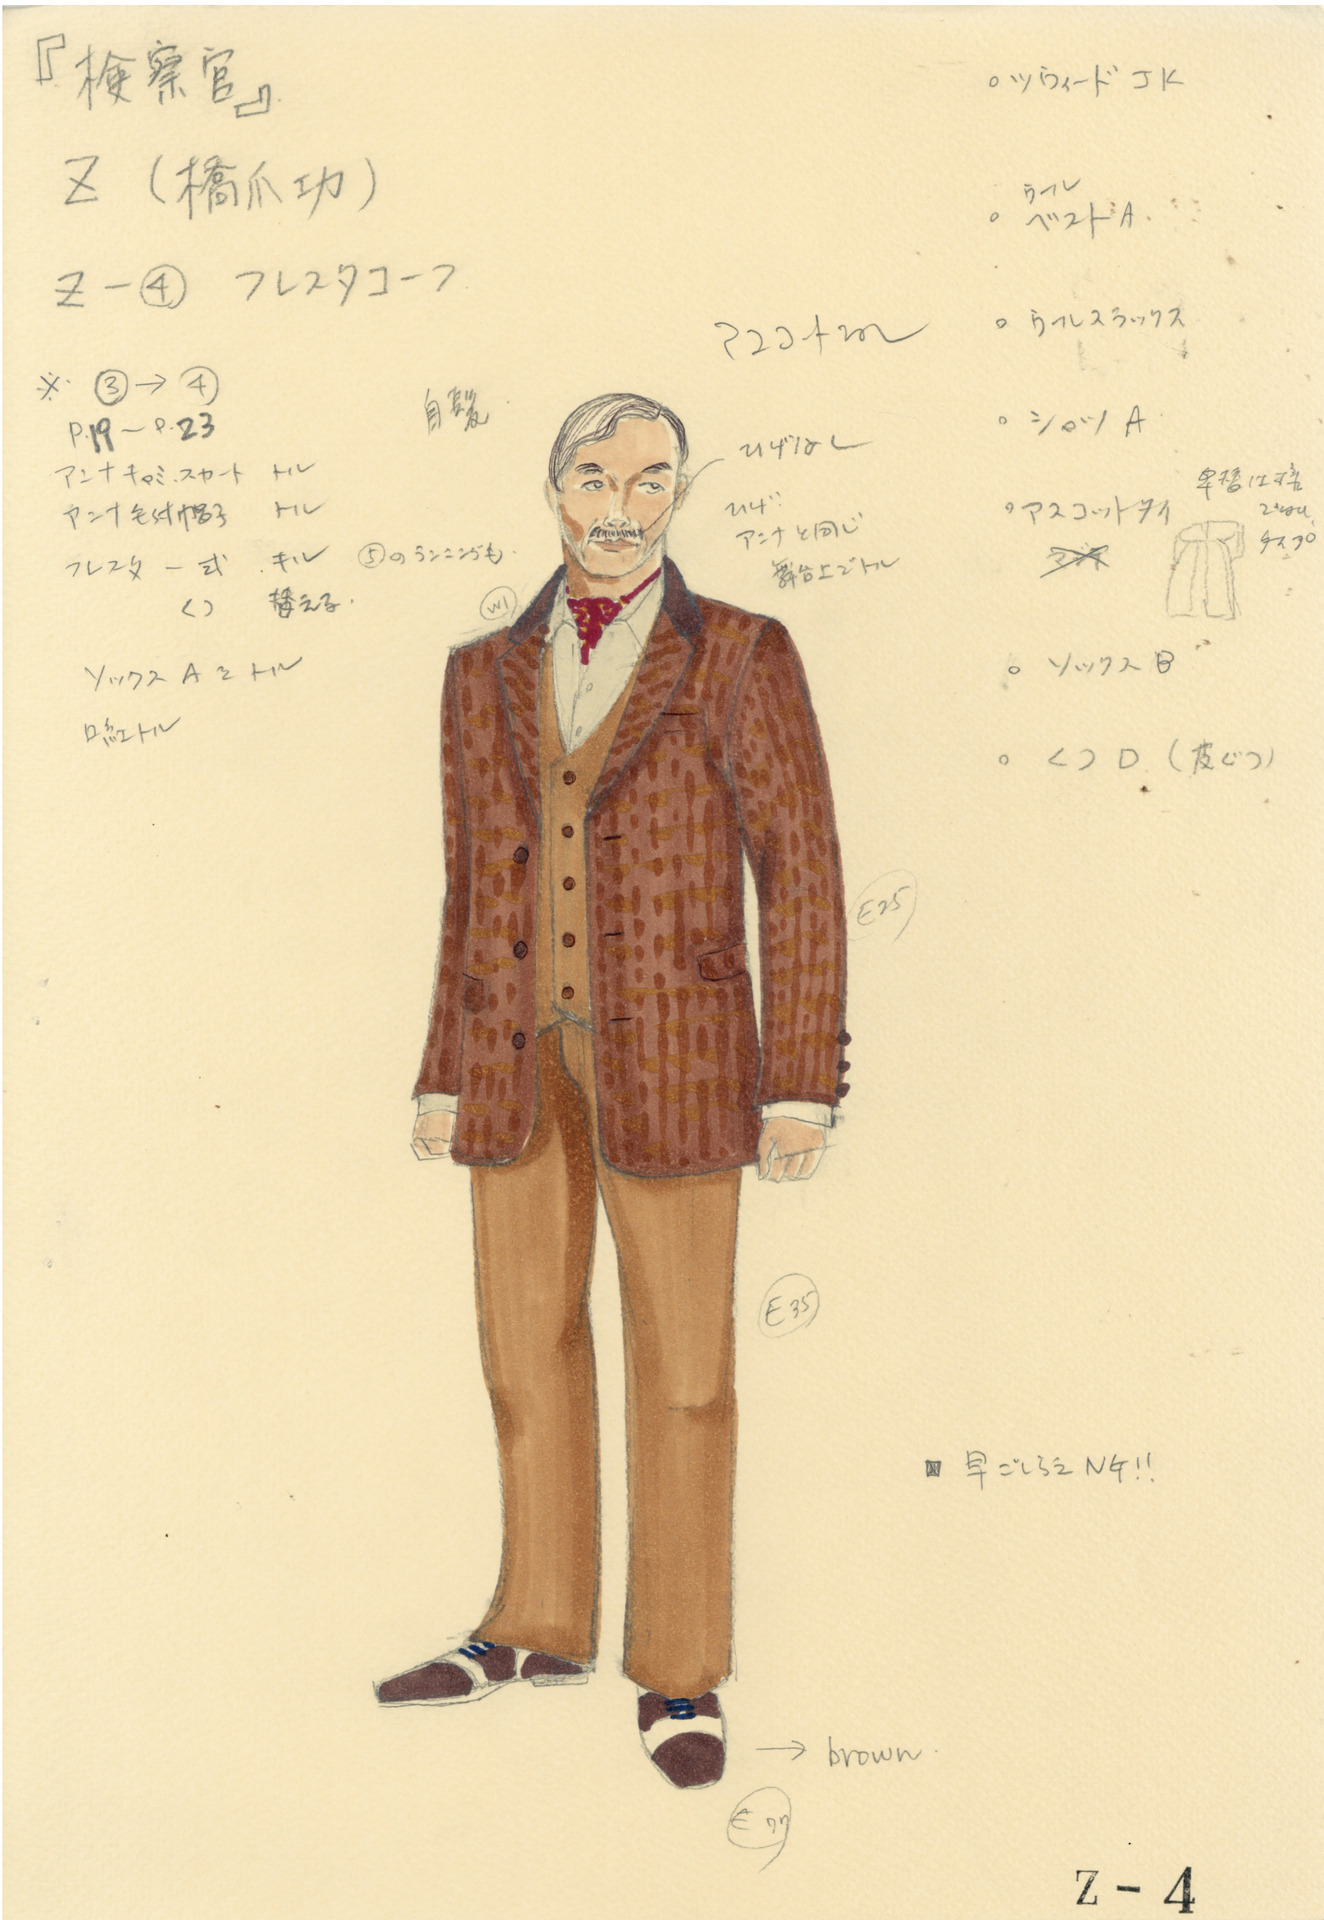 『検察官』
Z (橋爪功)
Z-④ フレスタコーフ
※ ③→④
P.19～P.23
アンナキャミ.スカート トル
アンナ毛付帽子 トル
フレスタ一式 キル
くつ 替える.
⑤のランニングも.
ソックスAをトル
口紅トル
自髪
W1
ひげなし
ひげ:
アンナと同じ
舞台上でトル
○ツウィードJK
○ウールベストA.
○ウールスラックス
○シャツA
○アスコットタイ
○ソックスB
○くつD (皮ぐつ)
E25
E35
■早ごしらえNG!!
→ brown.
E77
Z-4